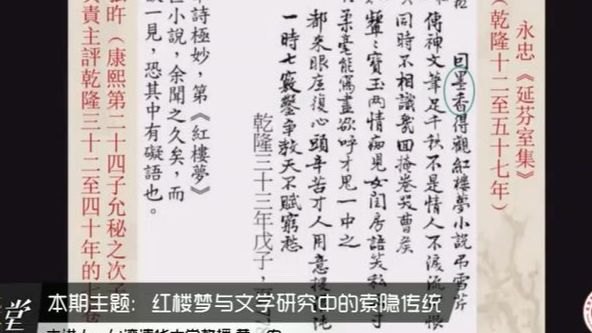 永忠《延芬室集》
（乾隆十二至五十七年）
因墨香得觀紅樓夢小說弔雪芹
傳神文筆足千秋不是情人不淚流可恨
同時不相識幾回掩卷哭曹侯
顰顰寶玉兩情痴兒女閨房語笑私三寸
柔毫能寫盡欲呼才鬼一中之
都來眼底復心頭辛苦才人用意搜混沌
一時七竅鑿爭教天不賦窮愁
乾隆三十三年戊子，
詩極妙，第《紅樓夢》
小說，余聞之久矣，而
一見，恐其中有礙語也。
弘旿（康熙第二十四子允秘之次子
責主評乾隆三十二至四十年的七
堂
本期主题：红楼梦与文学研究中的索隐传统